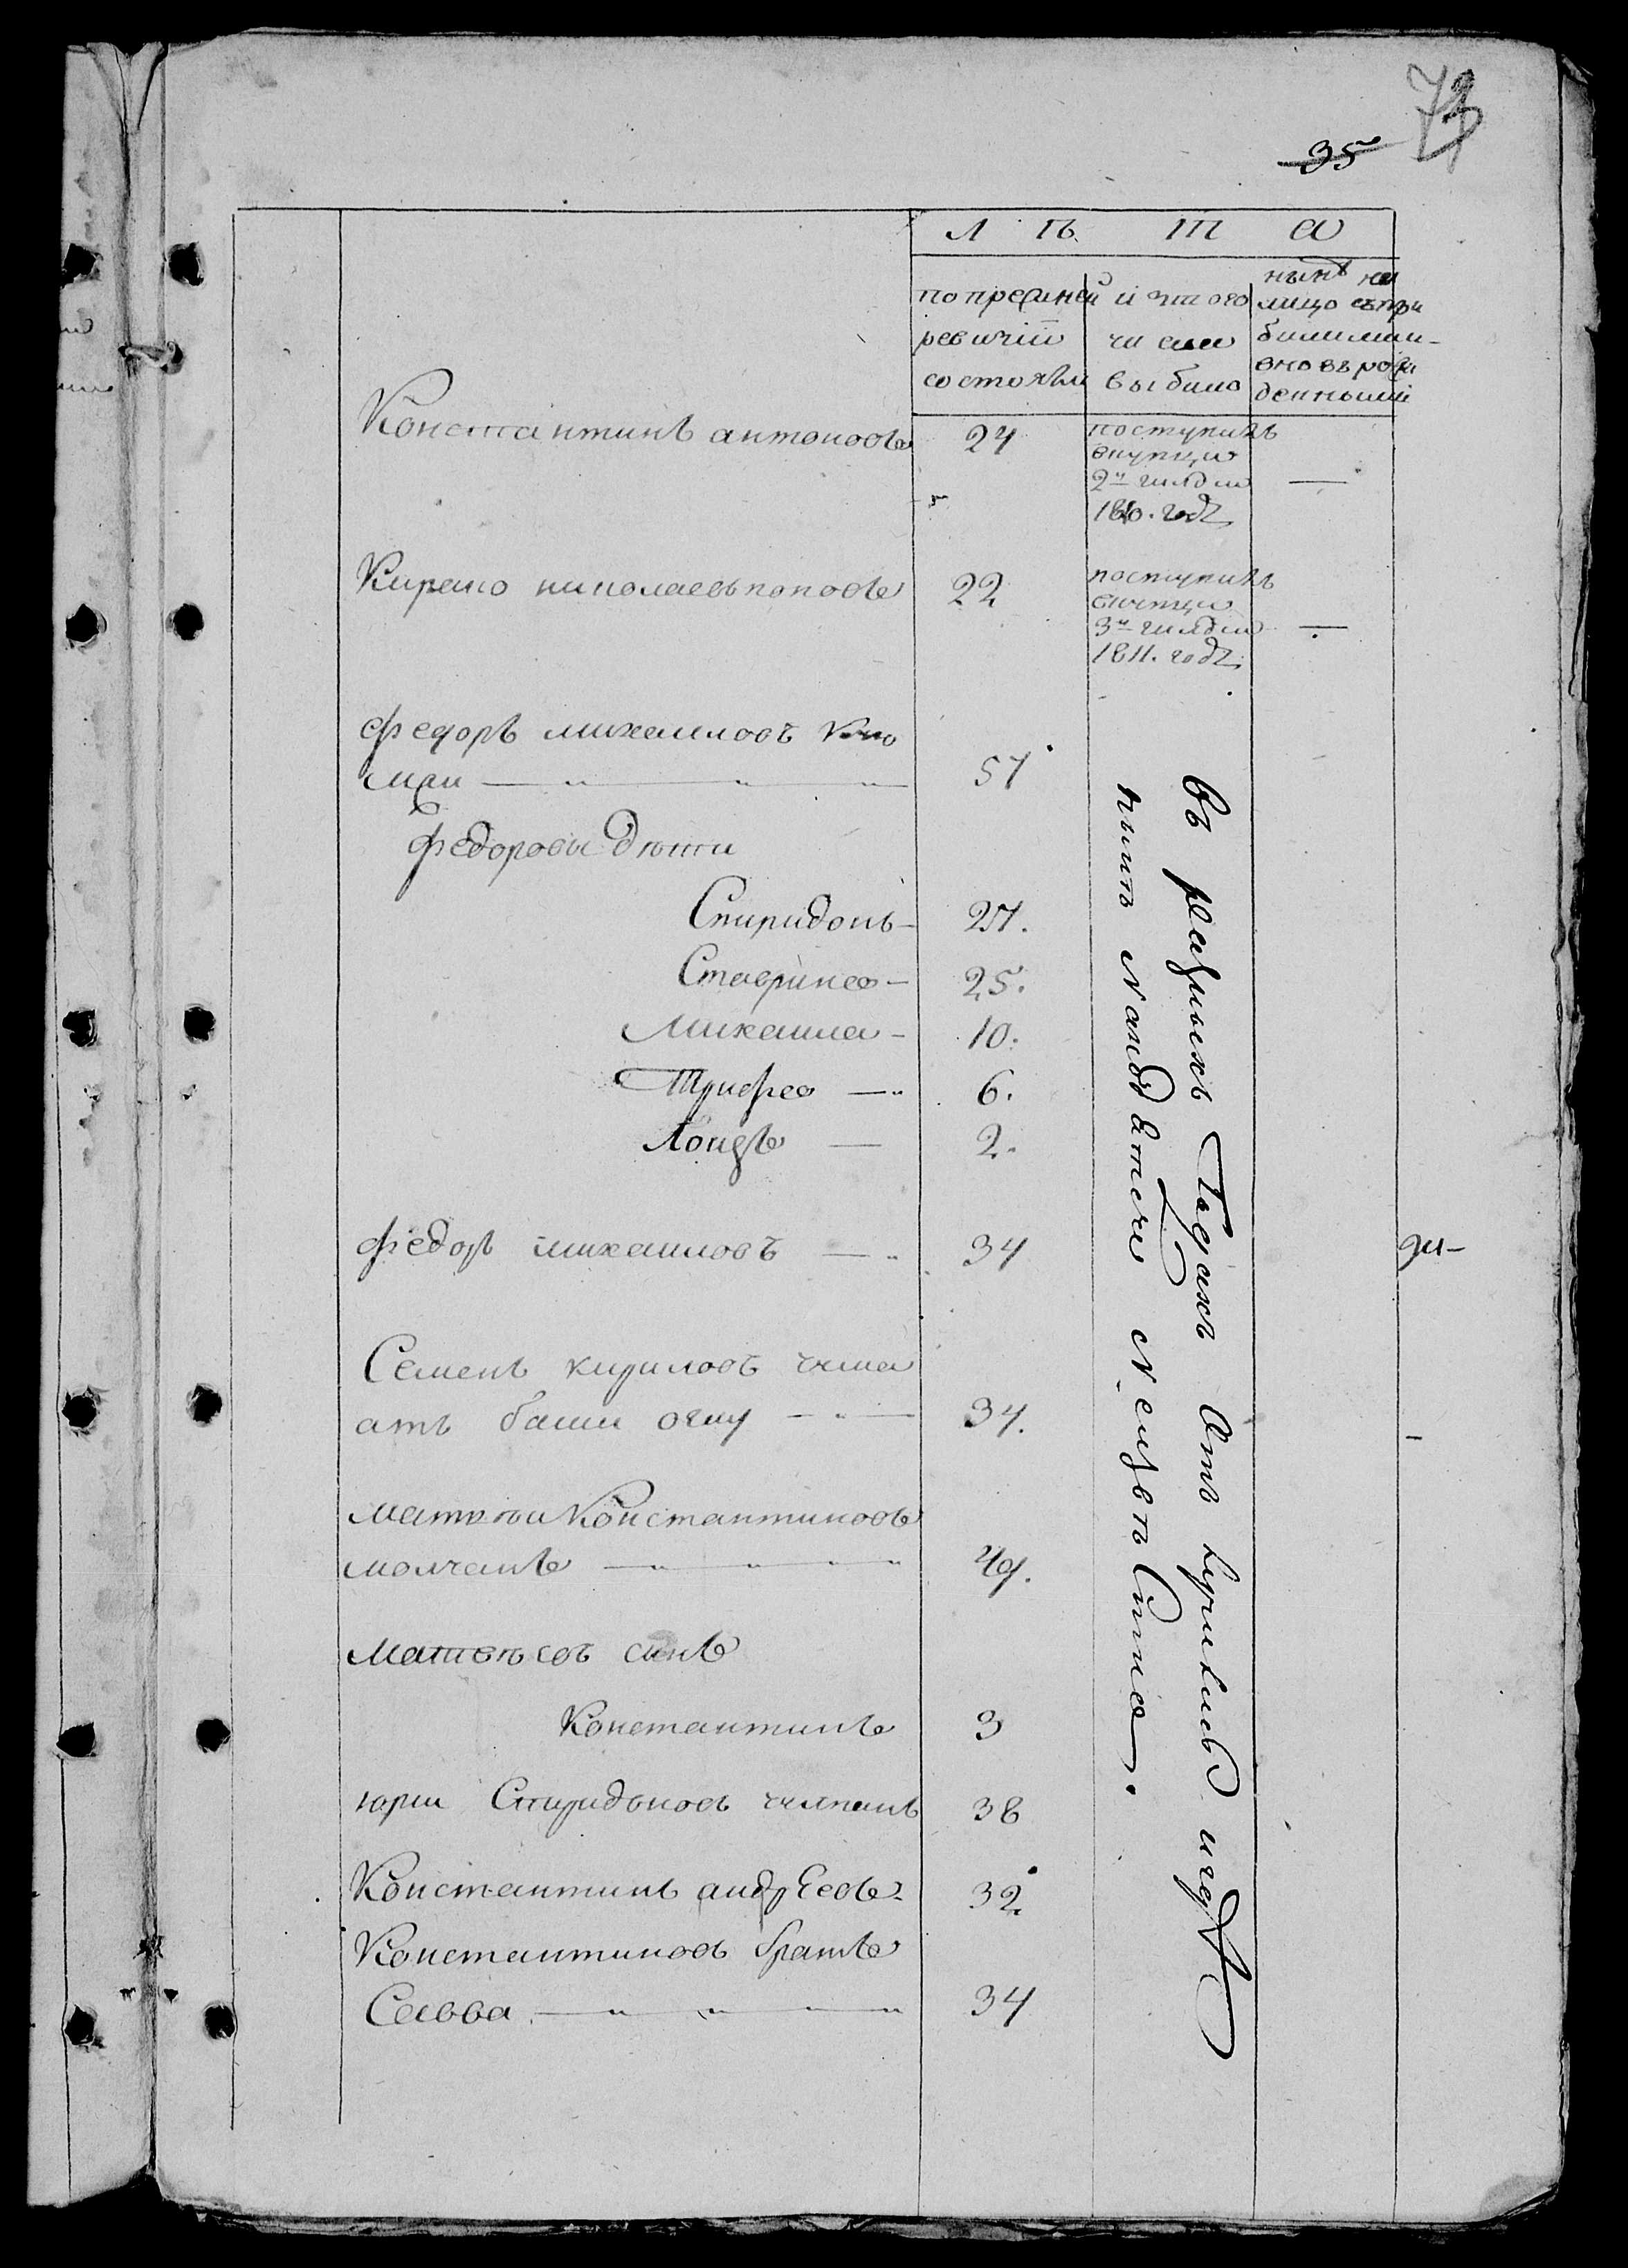 73
35
Л Ѣ Т А
по прежней
ревизіи
состояли
изтого
числа
выбыло
нынѣ на
лицо съпри
былими
вновь рож
денными
Константинъ антоновъ 24
поступилъ
вкупцы
2й гилдии
1810. годѣ
—
Кирько николаевъ поповъ 22
поступилъ
3й гилдии
1811. годѣ
—
Федоръ михаиловъ
57
Федоровы дѣти
Спиридонъ — 27.
Ставринъ — 25.
Михаила — 10.
Трифъ — 6.
2.
Федоръ михаиловъ — 34
Семенъ кириловъ
башы оглу — 34.
матвѣи Константиновъ
молчанъ — 49.
Матвѣевъ сынъ
Константинъ 3
юрии Спиридоновъ 38
Константинъ андрѣевъ 32
Константиновъ братъ
Савва — 34
въ разныхъ Годахъ Отъ лучились игдѣ
нынѣ находятся неизвѣстно.